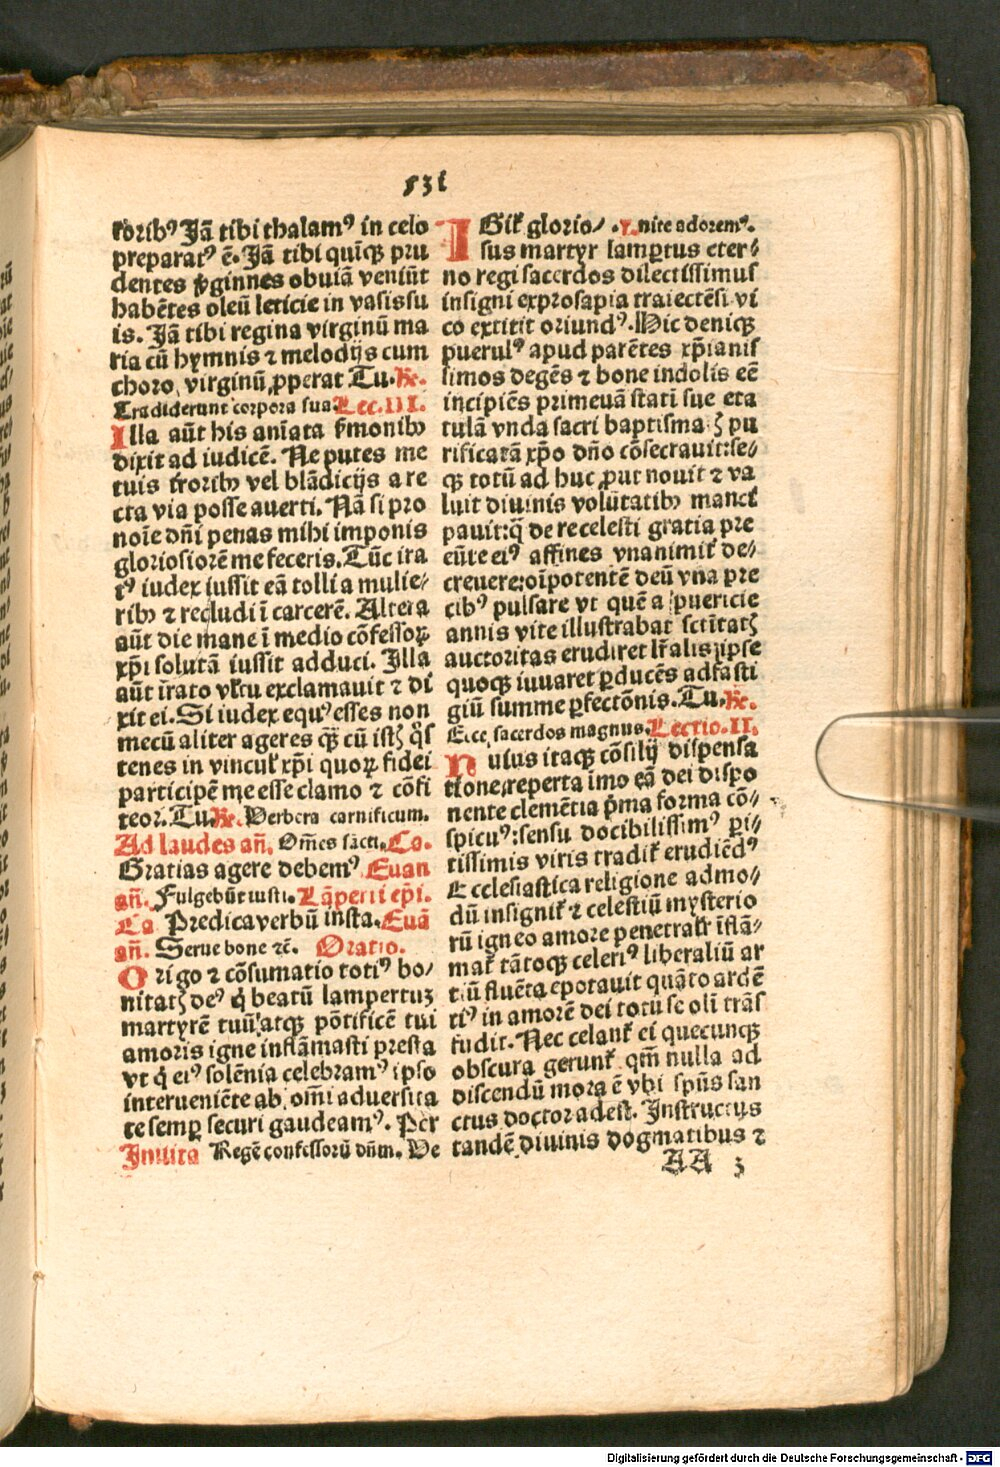 531
torib⁹ Jā tibi thalam⁹ in celo
preparat⁹ ē. Jā tibi quīqꝫ pru
dentes v̄ginnes obuiā veniūt
habētes oleū leticie in vasis su
is. Jā tibi regina virginū ma
ria cū hymnis ⁊ melodijs cum
choro virginū ꝓperat Tu. R̄.
Tradiderunt corpora sua. Lec. III.
Illa aūt his aniata ẜmonibꝫ
dixit ad iudicē. Ne putes me
tuis t̄roribꝫ vel blādicijs a re
cta via posse auerti. Nā si pro
noīe dn̄i penas mihi imponis
gloriosiorē me feceris. Tūc ira
t⁹ iudex iussit eā tolli a mulie⸗
ribꝫ ⁊ recludi ī carcerē. Altera
aūt die mane ī medio cōfessoꝝ
xp̄i solutā iussit adduci. Illa
aūt īrato vltu exclamauit ⁊ di
xit ei. Si iudex equ⁹ esses non
mecū aliter ageres qꝫ̄ cū istꝫ q̇s
tenes in vincul̓ xp̄i quoꝝ fidei
participē me esse clamo ⁊ cōfi
teor. Tu. R̄. Verbera carnificum.
Ad laudes añ. Om̄es sācti. Ca.
Gratias agere debem⁹ Euan
añ. Fulgebūt iusti. Lāperti ep̄i.
Ca Predica verbū insta. Euā
añ. Serue bone ⁊c̄. Oratio.
Origo ⁊ cōsumatio toti⁹ bo⸗
nitatꝫ de⁹ q̇ beatū lampertuꝫ
martyrē tuū atqꝫ pōtificē tui
amoris igne inflāmasti presta
vt q̇ ei⁹ solēnia celebram⁹ ipso
interueniēte ab om̄i aduersita
te semꝑ securi gaudeam⁹. Per
Inuita Regē confessorū dn̄m. Ve
IGit̄ glorio⸗ .r. nite adorem⁹.
sus martyr lamꝑtus eter⸗
no regi sacerdos dilectissimus
insigni ex prosapia traiectēsi vi
co extitit oriund⁹. Hic deniqꝫ
puerul⁹ apud parētes xp̄ianis
simos degēs ⁊ bone indolis eē
incipiēs primeuā stati sue eta
tulā vnda sacri baptisma ꝫ pu
rificatā xp̄o dn̄o cōsecrauit: se⸗
qꝫ totū ad huc ꝓut nouit ⁊ va
luit diuinis volūtatibꝫ manci
pauit: q̄ de re celesti gratia pre
eūte ei⁹ affines vnanimit̄ de⸗
creuere: oīpotentē deū vna pre
cib⁹ pulsare vt quē a puericie
annis vite illustrabat sctītatꝫ
auctoritas erudiret lr̄alis; ipse
quoqꝫ iuuaret ꝑducēs ad fasti
giū summe ꝑfectōnis. Tu. R̄.
Ecce sacerdos magnus. Lectio. II.
Nuius itaqꝫ cōsilij dispensa
tione, reperta imo eā dei dispo
nente clemētia p̄ma forma cō⸗
spicu⁹: sensu docibilissim⁹ ꝑi⸗
tissimis viris tradit̄ erudiēd⁹
Ecclesiastica religione admo⸗
dū insignit̄ ⁊ celestiū mysterio
rū igneo amore penetralit̄ īflā⸗
mat̄ tātoqꝫ celeri⁹ liberaliū ar
tiū fluēta epotauit quāto ardē
ti⁹ in amorē dei totū se olī trās
fudit. Nec celant̄ ei quecunqꝫ
obscura gerunt̄ qm̄ nulla ad
discendū mora ē vbi spūs san
ctus doctor adest. Instructus
tandē diuinis dogmatibus ⁊
AA 3
Digitalisierung gefördert durch die Deutsche Forschungsgemeinschaft - DFG